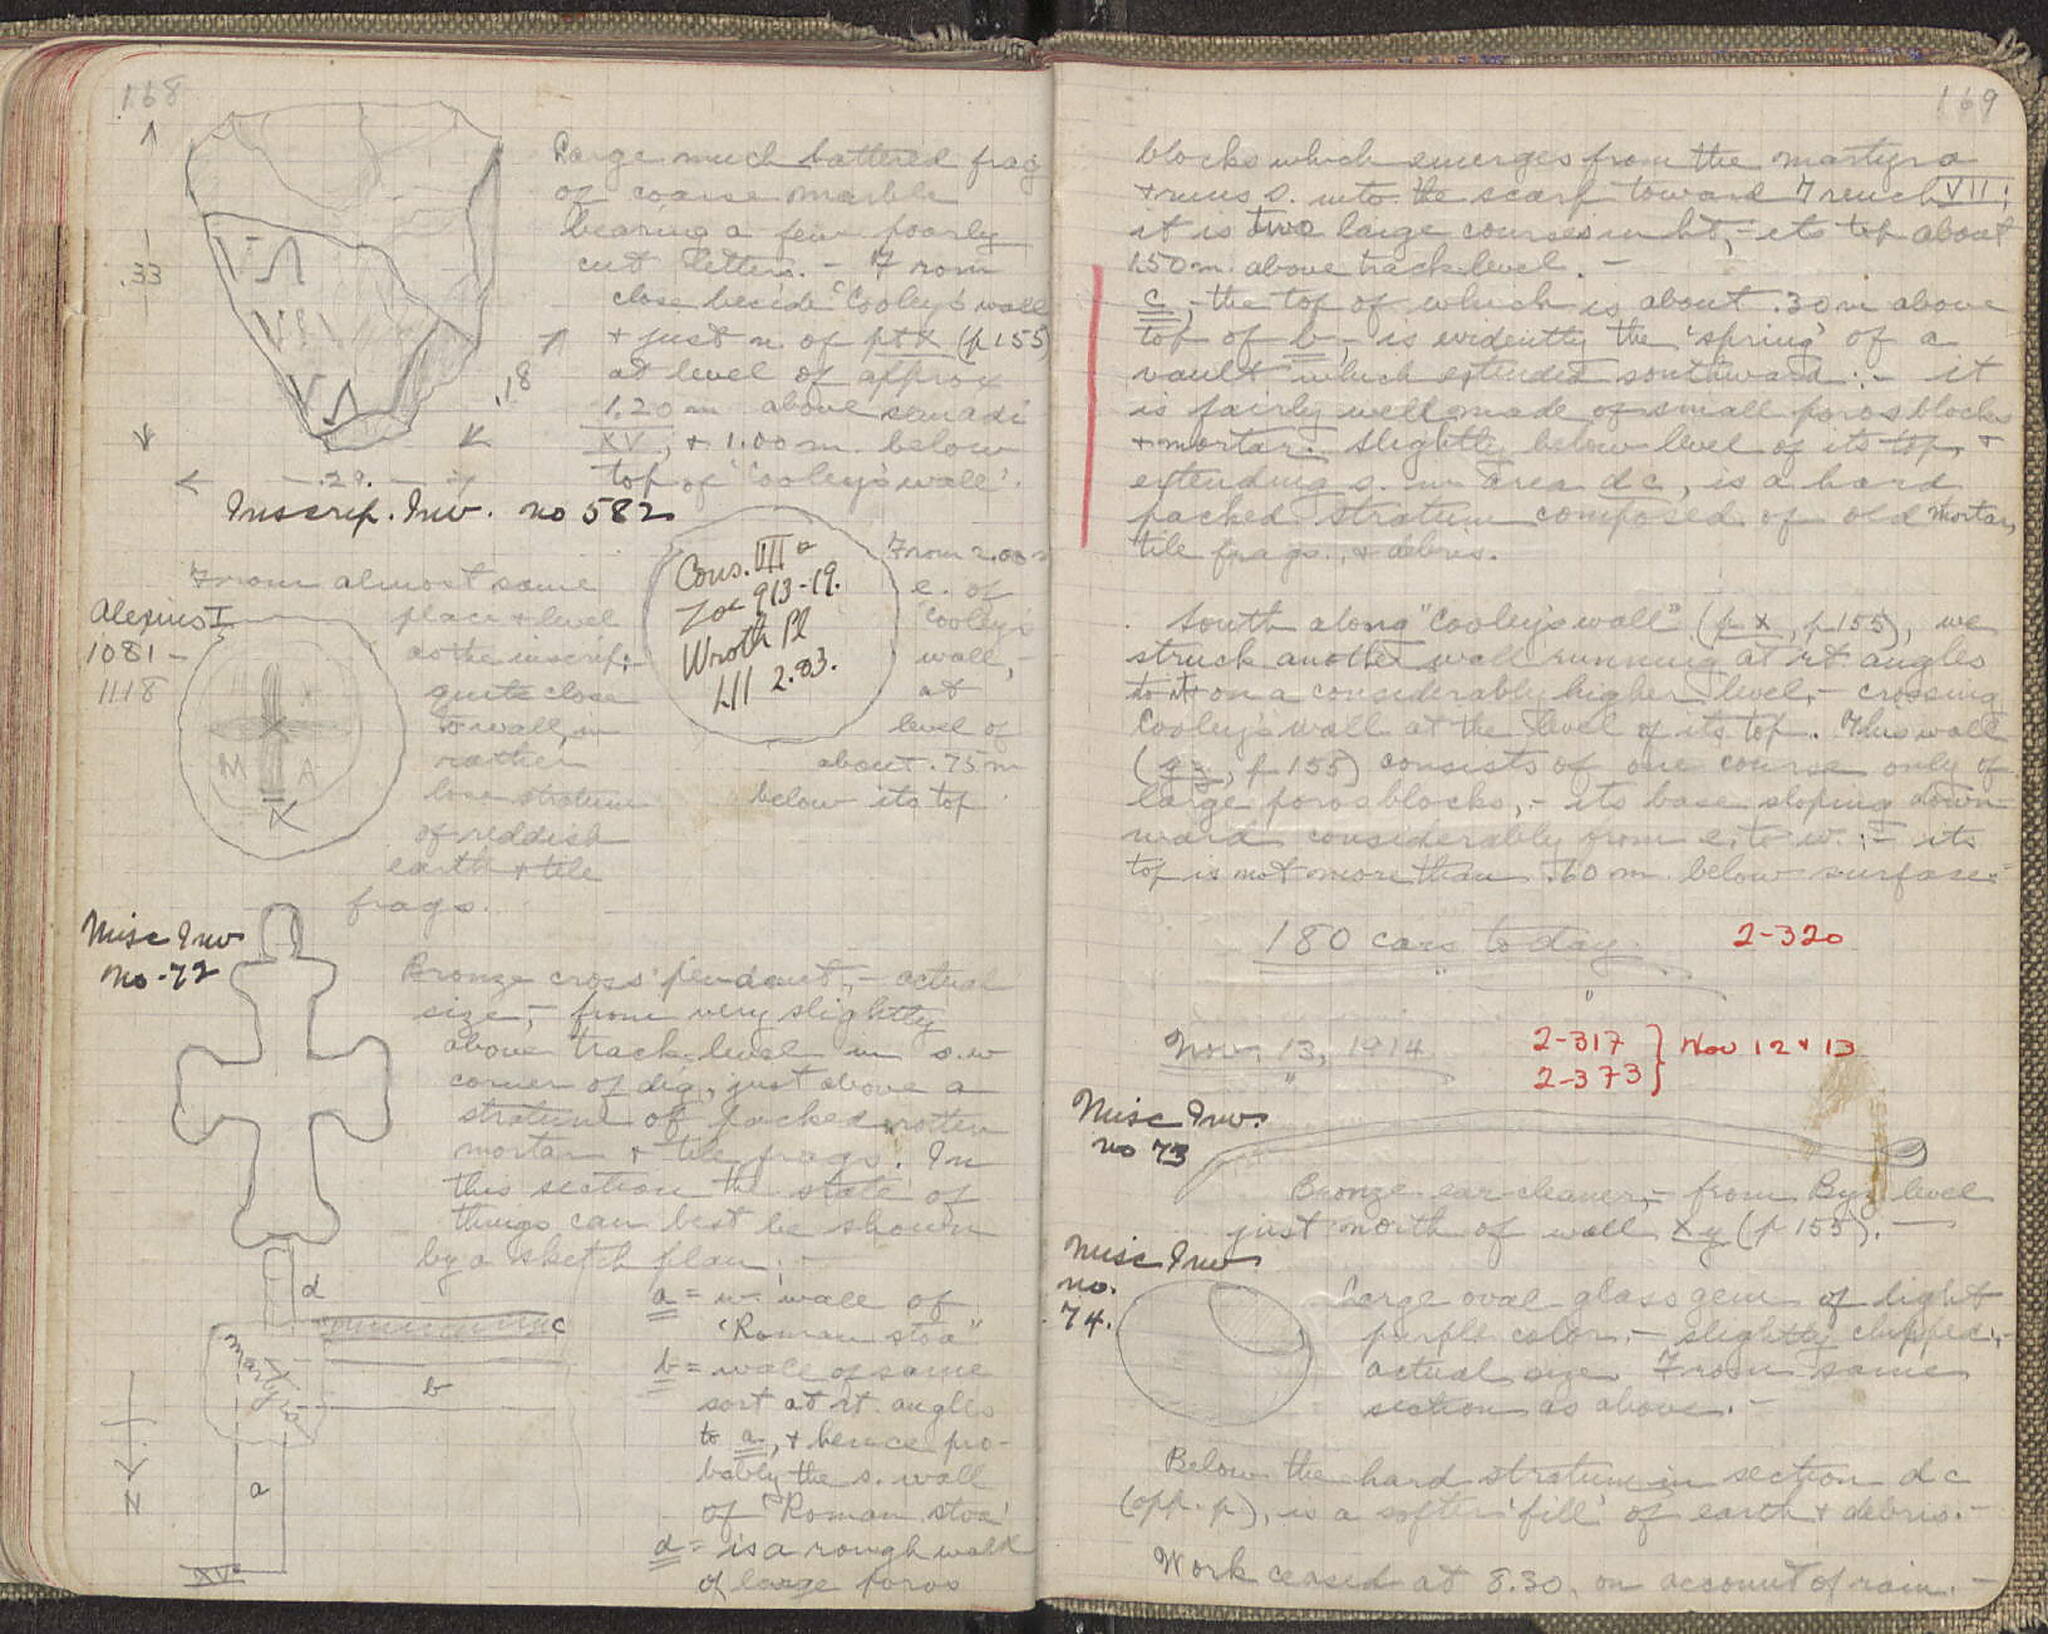 168
Large much battered frag
of coarse marble
bearing a few poorly
cut letters. - From
close beside 'Cooley's wall
+ just n. of pt x (p 155)
at level of approx
1.20 m above semadi
XV, + 1.00 m. below
top of 'Cooley's wall'.
.33
.18
.29.
Inscrip. Inv. no 582
From almost same
place + level
as the inscrip;
quite close
to wall, in
rather
lose stratum
of reddish
earth + tile
frags.
Alexius I
1081 -
1118
M A
Cons. VII
Zoe 913-19.
Wroth Pl
LII 2.83.
From 2.00 m
e. of
'Cooley's
wall, -
at
level of
about .75 m
below its top
Misc Inv
no. 72
Bronze cross pendant, - actual
size, - from very slightly
above track-level in s.w
corner of dig, just above a
stratum of packed rotten
mortar + tile frags. In
this section the state of
things can best be shown
by a sketch plan: -
d
c
martyra
b
a
N
XV
a = w. wall of
'Roman stoa"
b = wall of same
sort at rt. angles
to a, + hence pro-
bably the s. wall
of 'Roman stoa'
d = is a rough wall
of large poros
169
blocks which emerges from the martyra
+ runs s. into the scarf toward Trench VII;
it is two large courses in ht, - its top about
1.50 m. above track level. -
c, - the top of which is about .30 m above
top of b, - is evidently the 'spring' of a
vault which extended southward: - it
is fairly well made of small poros blocks
+ mortar. Slightly below level of its top, +
extending s. in area dc, is a hard
packed stratum composed of old mortar,
tile frags., + debris.
South along "Cooley's wall" (p x, p 155), we
struck another wall running at rt angles
to it + on a considerably higher level, - crossing
Cooley's wall at the level of its top. This wall
(gz, p 155) consists of one course only of
large poros blocks, - its base sloping down-
ward considerably from e. to w.: - its
top is not more than .60 m. below surface.
180 cars today. 2-320
Nov. 13, 1914
2-317
2-373 } Nov 12 + 13
Misc Inv.
no 73
Bronze ear-cleaner, - from Byz level
just north of wall xy (p 155). -
Misc Inv
no.
74.
Large oval glass gem of light
purple color, - slightly chipped, -
actual size. From same
section as above. -
Below the hard stratum in section dc
(opp. p), is a softer 'fill' of earth + debris. -
Work ceased at 8.30, on account of rain. -